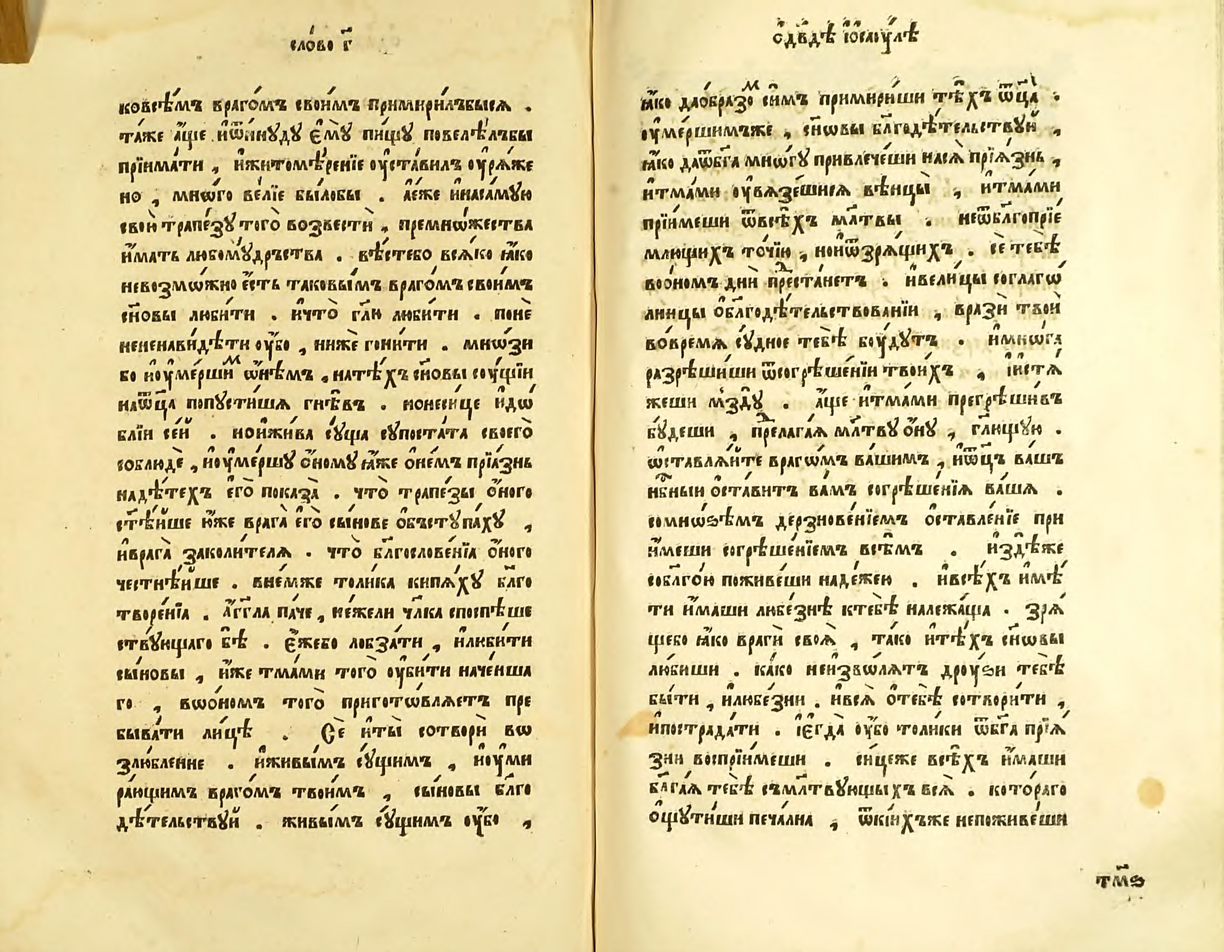 сло́во г҃
ковсѣ́мъ враго́мъ свои́мъ примири́лъбыся .
та́же а҆́ще ѿи҆нꙋду є҆мꙋ̀ пи́щꙋ повелѣ́лъбы
прїима́ти , и҆житомѣ́ренїе оу҆ста́вилъ оу҆рѧ́же
но , мнѡ́го ве́лїе бы́лобы . а҆е́же и҆наса́мꙋю
свою̀ трапе́зꙋ того̀ возвестѝ , премнѡ́жества
и҆́мать любомꙋ́дрьства . вѣ́стебо всѧ́ко ꙗ҆́ко
невозмѡ́жно є҆́сть таковы́мъ враго́мъ свои́мъ
сн҃овы люби́ти . и҆что̀ гл҃ю люби́ти . поне
ненави́дѣти оу҆́бо , ниже гони́ти . мнѡ́зи
бо и҆оу҆ме́ршим ѡ҆не́мъ , натѣ́хъ сн҃овы сꙋ́щїи
наѿц҃а попꙋсти́шѧ гнѣ́въ . нонеси́це и҆дѡ
блїи се́й . нои҆жива сꙋ́ща сꙋпоста́та своего̀
соблюдѐ , и҆оу҆ме́ршꙋ ѻ҆́номꙋ ꙗ҆́же ѻ҆не́мъ прїѧ́знь
надѣ́техъ є҆го̀ показа̀ . что̀ трапе́зы ѻ҆́ного
ст҃ѣ́йше ю҆́же врага̀ є҆го̀ сы́нове ѻ҆бъстꙋпа́хꙋ ,
и҆врага̀ заколи́телѧ . что̀ бл҃гослове́нїа ѻ҆́ного
честнѣ́йше . вне́мже толи́ка кипѧ́хꙋ бл҃го
творе́нїа . а҆́гг҃ла па́че , не́жели чл҃ка споспѣ́ше
ствꙋ́ющаго бѣ̀ . є҆́жебо лобза́ти , и҆люби́ти
сы́новы , и҆́же тма́ми того̀ оу҆би́ти наче́нша
го , вѡѻ҆́номъ того̀ приготѡвлѧ́етъ пре
быва́ти лицѣ̀ . Сѐ и҆ты̀ сотворѝ вѡ
злюбле́нне . и҆живы́мъ сꙋ́щимъ , и҆оу҆ми
ра́ющимъ враго́мъ твои́мъ , сы́новы бл҃го
дѣ́тельствꙋй . живы́мъ сꙋ́щимъ оу҆́бо ,
ѻ҆дв҃дѣ і҆ѻ҆саоу́лѣ
ꙗ҆́ко даѻ҆бразом си́мъ примири́ши тѣ́хъ ѿц҃а .
оу҆ме́ршимъже , сн҃овы бл҃годѣ́тельствꙋй ,
ꙗ҆́ко даѿбг҃а мнѡ́гꙋ привлече́ши насѧ̀ прїѧ́знь ,
и҆тма́ми оу҆вѧзе́шисѧ вѣнцы̀ , и҆тма́ми
прїи́меши ѿвсѣ́хъ мл҃твы . неѿбл҃гопрїе
млющихъ то́чїю , нои҆ѿзрѧ́щихъ . сѐ тебѣ̀
воѻ҆номъ днѝ преста́нетъ . и҆вели́цы соглагѡ́
лницы ѻ҆бл҃годѣ́тельствованїи , вразѝ твоѝ
вовремѧ̀ сꙋ́дное тебѣ̀ боу́дꙋтъ . и҆мнѡ́га
разрѣши́ши ѿсогрѣше́нїи твои́хъ , і҆истѧ́
жеши мъздꙋ̀ . а҆́ще и҆тма́ми прегрѣши́въ
бꙋ́деши , прелага́ѧ мл҃твꙋ ѻ҆нꙋ̀ , гл҃ющꙋю .
ѡ҆ставлѧ́йте враго́мъ ва́шимъ , и҆ѿц҃ъ ва́шъ
нб҃ныи ѻ҆ста́витъ ва́мъ согрѣше́нїѧ ва́шѧ .
сомнѡ́ѕѣмъ дерзнове́нїемъ ѻ҆ставле́нїе при
и҆́меши согрѣше́нїемъ всѣ́мъ . и҆здѣ́же
собл҃го́ю поживе́ши наде́жею . и҆всѣ́хъ и҆мѣ́
ти и҆́маши любе́знѣ ктебѣ̀ належа́ща . зрѧ́
щебо ꙗ҆́ко врагѝ своѧ̀ , та́ко и҆тѣ́хъ сн҃овы
лю́биши . ка́ко неи҆зво́лѧтъ дроу́ѕи тебѣ̀
бы́ти , и҆любе́зни . и҆всѧ̀ ѻ҆тебѣ̀ сотвори́ти ,
и҆пострада́ти . і҆є҆гда̀ оу҆́бо толи́ки ѿбг҃а прїѧ́
зни воспрїи́меши . си́цеже всѣ́хъ и҆́маши
бл҃га́ѧ тебѣ̀ съмл҃твꙋющыхъ всѧ̀ . кото́раго
ѻ҆щꙋти́ши печа́лна , ѿки́хъже непоживе́ши
тм҃ѡ